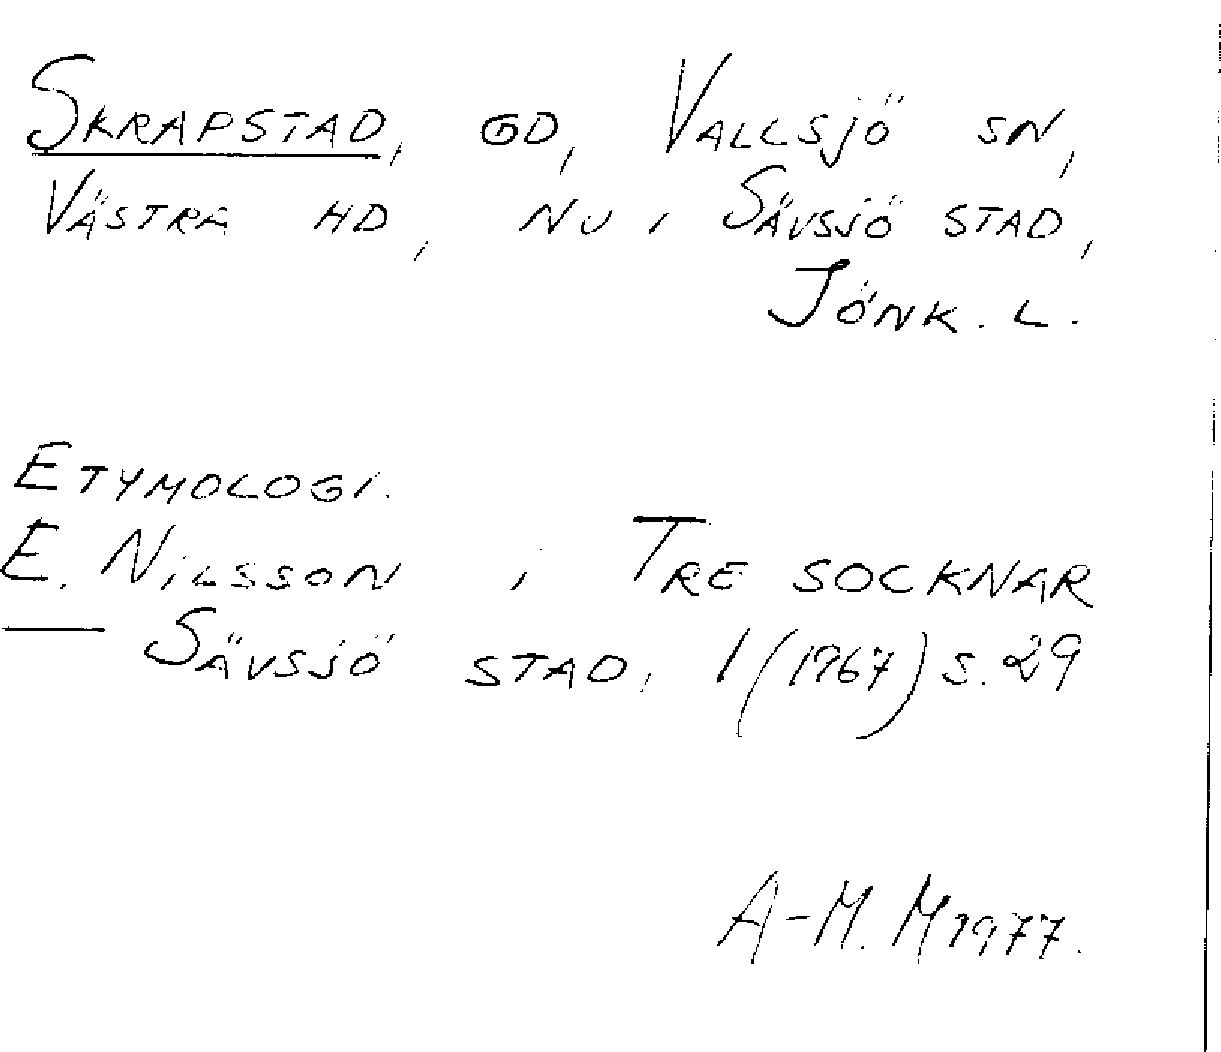 SKRAPSTAD, GD, VALLSJÖ SN,
VÄSTRA HD, NU I SÄVSJÖ STAD,
JÖNK. L.
ETYMOLOGI.
E. NILSSON i TRE SOCKNAR
— SÄVSJÖ STAD, 1 (1967) S. 29
A-M. M 1977.